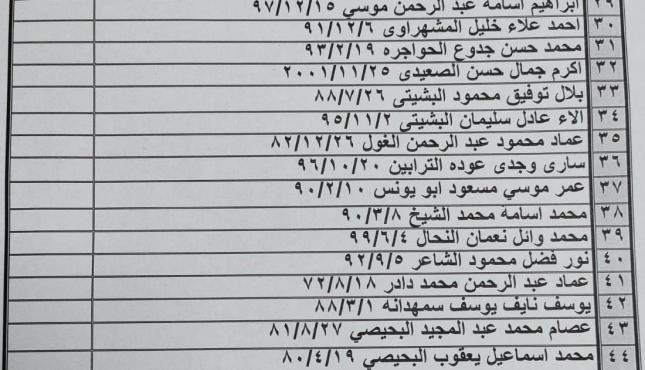 ٢٩ ابراهيم اسامة عبد الرحمن موسي ٩٧/١٢/١٥
٣٠ احمد علاء خليل المشهراوى ٩١/١٢/٦
٣١ محمد حسن جدوع الحواجره ٩٣/٢/١٩
٣٢ اكرم جمال حسن الصعيدى ٢٠٠١/١١/٢٥
٣٣ بلال توفيق محمود البشيتى ٨٨/٧/٢٦
٣٤ الاء عادل سليمان البشيتى ٩٥/١١/٢
٣٥ عماد محمود عبد الرحمن الغول ٨٢/١٢/٢٦
٣٦ سارى وجدى عوده الترابين ٩٦/١٠/٢٠
٣٧ عمر موسي مسعود ابو يونس ٩٠/٢/١٠
٣٨ محمد اسامة محمد الشيخ ٩٠/٣/٨
٣٩ محمد وائل نعمان النحال ٩٩/٦/٤
٤٠ نور فضل محمود الشاعر ٩٢/٩/٥
٤١ عماد عبد الرحمن محمد دادر ٧٢/٨/١٨
٤٢ يوسف نايف يوسف سمهدانه ٨٨/٣/١
٤٣ عصام محمد عبد المجيد البحيصي ٨١/٨/٢٧
٤٤ محمد اسماعيل يعقوب البحيصي ٨٠/٤/١٩